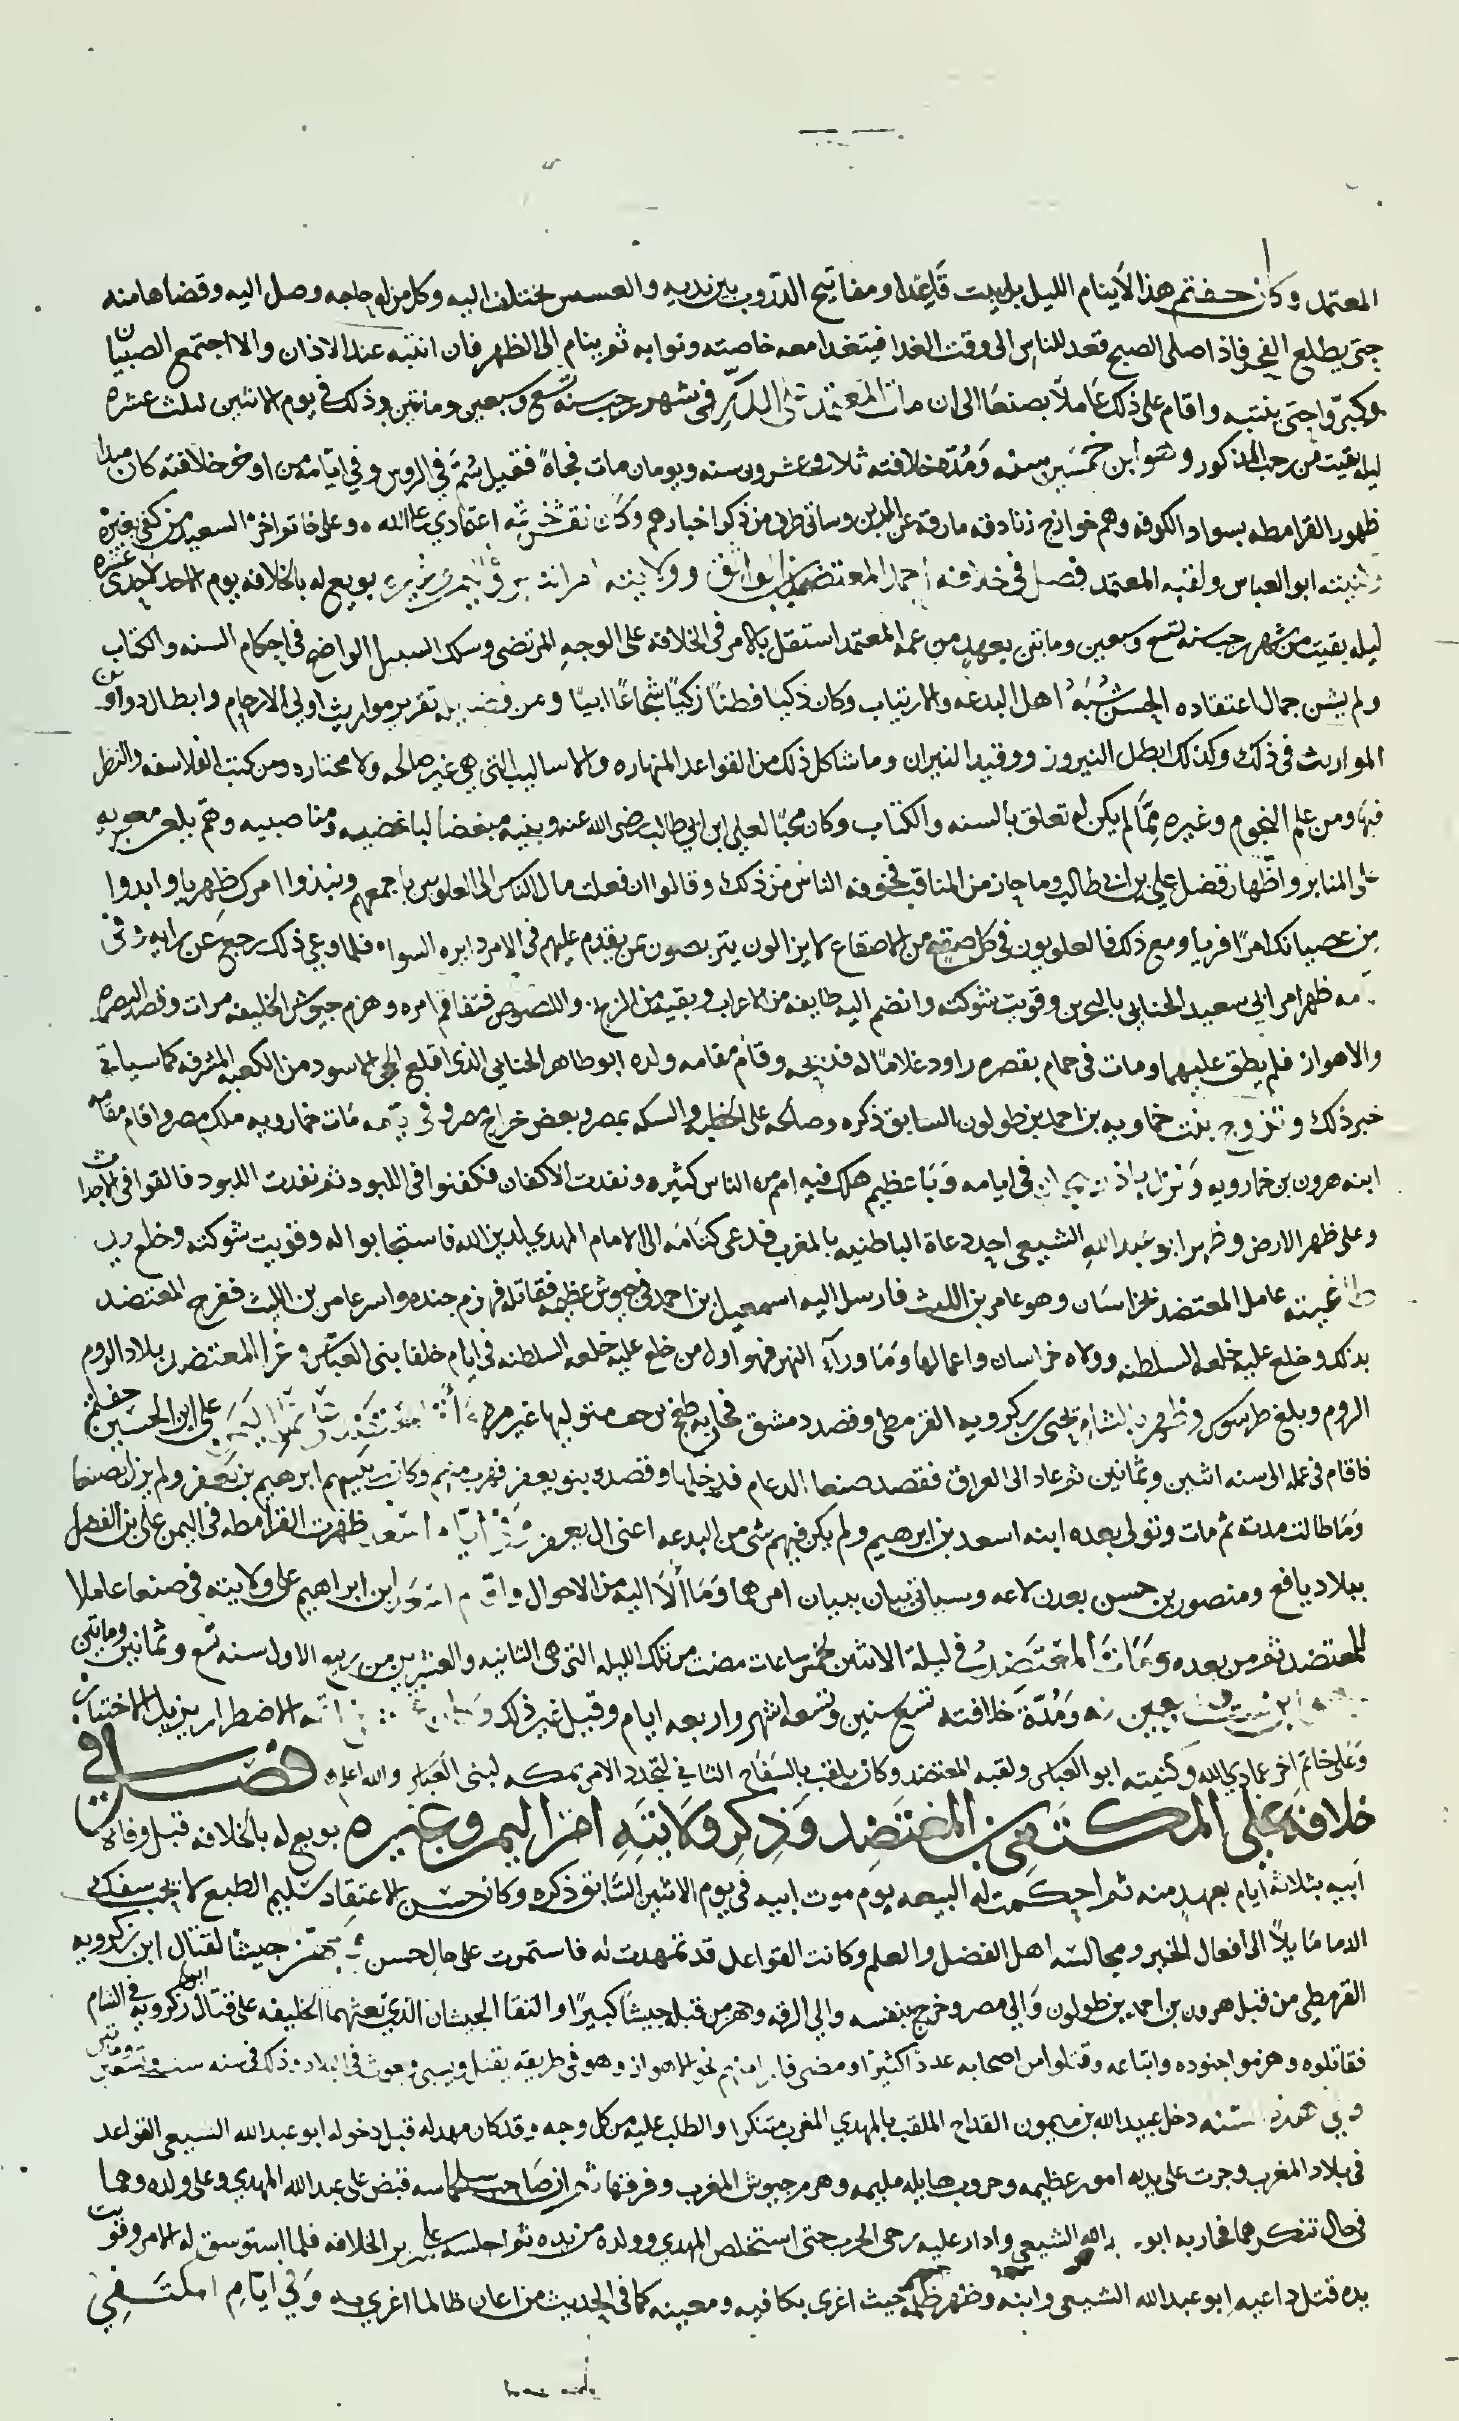 المعتمد وكان حفتم هذا لا ينام الليل بل يبيت قاعدًا ومفاتيح الدروب بين يديه والعسس تختلف اليه وكل من له حاجه وصل اليه وقضاها منه
حتى يطلع الفجر فاذا صلى الصبح قعد للناس الى وقت الغدا فيتغدا معه خاصته ونوابه ثم ينام الى الظهر فان انتبه عند الاذان والا اجتمع الصبيان
وكبروا حتى ينتبه واقام على ذلك عاملًا بصنعا الى ان مات المعتمد في شهر رجب سنه تسع وسبعين ومائتين وذلك في يوم الاثنين لثلث عشره
ليله بقيت من رجب المذكور وهو ابن خمسين سنه ومدة خلافته ثلاث وعشرون سنه ويومان مات فجاة فقيل سُمّ في الروس وفي ايامه من اوخر خلافته كان مبدا
ظهور القرامطه بسواد الكوفه وهم خوارج زنادقه مارقه عن الدين وساتي طرف من ذكر اخبارهم وكان نقش اعتمادي على الله وعلى خاتم اخر السعيد من كفي بغيره
وكنيته ابو العباس ولقبه المعتمد فصل في خلافه احمد المعتضد وولايته امر اليمن وغيره بويع له بالخلافه يوم الاحد لاحدى عشره
ليله بقيت من شهر رجب سنه تسع وسبعين ومائتين بعهد من عمه المعتمد استقل بالامر في الخلافة على الوجه المرتضى وسلك السبيل الواضح في احكام السنه والكتاب
ولم يشن جمال اعتقاده الحسن شُبَهُ اهل البدعه والارتياب وكان ذكيا فطنًا زكيًا شجاعًا ابيًا ومن تقرير مواريث اولي الارحام وابطال دواوين
المواريث في ذلك وكذلك ابطل النيروز ووقيد النيران وما شاكل ذلك من القواعد المنهاره والاساليب التي هي غير صالحه ولا مختاره ومن كتب الفلاسفه والنظر
فيها ومن علم النجوم وغيره مِمَّا لم يكن له تعلق بالسنه والكتاب وكان محبًا لعلي ابن ابي طالب رضي الله عنه وبنيه مبغضا لباغضيه ومناصبيه وهمّ بلعن معويه
على المنابر واظهار فضل علي بن ابي طالب وما حاز من المناقب فخوفه الناس من ذلك وقالوا ان فعلت مال الناس الى العلويين باجمعهم ونبذوا امرك ظهريا وابدوا
من عصيانك امرًا فريا ومع ذلك فالعلويون في كل صقع من الاصقاع لا يزالون يتربصون بمن يقدم عليهم في الامر دايره السوا فلما وعي ذلك رجع عن رايه وفي
ظهر امر ابي سعيد الجنابي بالبحرين وقويت شوكته وانضم اليه طايفه من الاعراب وبقيه من الزنج واللصوص فتفاقم امره وهزم جيوش الخليفه مرات وقصد البصره
والاهواز فلم يطق عليهما ومات في حمام بقصره راود غلامًا له فذبحه وقام مقامه ولده ابو طاهر الجنابي الذي اقلع الحجر الاسود من الكعبه المشرفه كما سياتي
خبر ذلك وتزوج بنت خمارويه بن احمد بن طولون السابق ذكره وصالحه على الخطبه والسكه بمصر وبعض خراج مصر وفي مات خمارويه ملك مصر واقام مقامه
ابنه هرون بن خمارويه ونزل في ايامه وبا عظيم هلك فيه امم من الناس كثيره ونفدت الاكفان فكفنوا في اللبود ثم نفدت اللبود فالقوا في الاجداث
وعلى ظهر الارض وظهر ابو عبدالله الشيعي احد دعاة الباطنيه بالمغرب فدعى كتامه الى الامام المهدي لدين الله فاستجابوا له وقويت شوكته وخلع
عامل المعتضد بخراسان وهو عامر بن الليث فارسل اليه اسمعيل بن احمد في جيوش عظيمه فقاتله فهزم جنده واسر عامر بن الليث ففرح المعتضد
بذلك وخلع عليه خلعه السلطنه وولاه خراسان واعمالها وما ورآء النهر فهو اول من خلع عليه خلعه السلطنه في ايام خلفا بني العباس وغزا المعتضد بلاد الروم
الروم وبلغ طرسوس وظهر بالشام يحيى بن زكرويه القرمطي وقصد دمشق فحاربه طغج بن جف متوليها غير مره علي ابن الحسين حفتم
فاقام في عمله الى سنه اثنين وثمانين ثم عاد الى العراق فقصد صنعا الدعام فدخلها وقصده بنو يعفر فهرب منهم وكان رييسهم ابرهيم بن يعفر ولم يزل بصنعا
وما طالت مدته ثم مات وتولى بعده ابنه اسعد بن ابرهيم ولم يكن فيهم شي من البدعه اعني ال يعفر وفي ايام اسعد ظهرت القرامطه في اليمن علي بن الفضل
ببلاد يافع ومنصور بن حسن بعدن لاعه وسياتي بيان امرهما وما آلا اليه من الاحوال واقام اسعد ابن ابراهيم على ولايته في صنعا عاملا
للمعتضد ثم من بعده ومات المعتضد في ليلة الاثنين لخمس ساعات مضت من تلك الليله التي هي الثانيه والعشرين من ربيع الاول سنه تسع وثمانين ومايتين
ومدّة خلافته تسع سنين وتسعه اشهر واربعه ايام وقيل غير ذلك الاضطرار يزيل الاختيار
وعلى خاتم اخر عمادي الله وكنيته ابو العباس ولقبه المعتضد وكان يلقب بالسفاح الثاني لتجدد الامر بمكه لبني العباس والله اعلم فصل في
خلافة علي المكتفي بن المعتضد وذكر ولايته امر اليمن وغيره بويع له بالخلافه قبل وفاة
ابيه بثلاثة ايام بعهد منه ثم احكمت له البيعه يوم موت ابيه في يوم الاثنين السابق ذكره وكان حسن الاعتقاد سليم الطبع لا يحب سفك
الدما مايلًا الى افعال الخير ومجالسه اهل الفضل والعلم وكانت القواعد قد تمهدت له فاستمرت على حال حسن جهز جيشًا لقتال ابن زكرويه
القرمطي من قبل هرون بن احمد بن طولون والي مصر وخرج بنفسه والي الرقه وجهز من قبله جيشًا كبيرًا والتقا الجيشان الذي بعثهما الخليفه على قتال ابن زكرويه في الشام
فقاتلوه وهزموا جنوده واتباعه وقتلوا من اصحابه عددًا كثيرًا ومضى منهم نحو الاهواز وهو في طريقه يقتل ويسبي في البلاد وذلك في سنه وتسعين ومايتين
وفي هذه السنه دخل عبيد الله بن ميمون القداح الملقب بالمهدي المغرب متنكرا والطلب عليه من كل وجه وقد كان مهد له قبل دخوله ابو عبد الله الشيعي القواعد
في بلاد المغرب وجرت على يديه امور عظيمه وحروب هايله مليمه وهزم جيوش المغرب وفرقها ثم ان صاحب سجلماسه قبض على عبد الله المهدي وعلى ولده وهما
في حال تنكرهما فحاربه ابو عبدالله الشيعي وادار عليه رحى الحرب حتى استخلص المهدي وولده من يده ثم اجلسه على سرير الخلافه فلما استوسق له الامر وقويت
يده قتل داعيه ابو عبد الله الشيعي وابنه وظهر ظلمه حيث اغرى بكافيه ومعينه كما في الحديث من اعان ظالما اغري به وفي ايام المكتفي